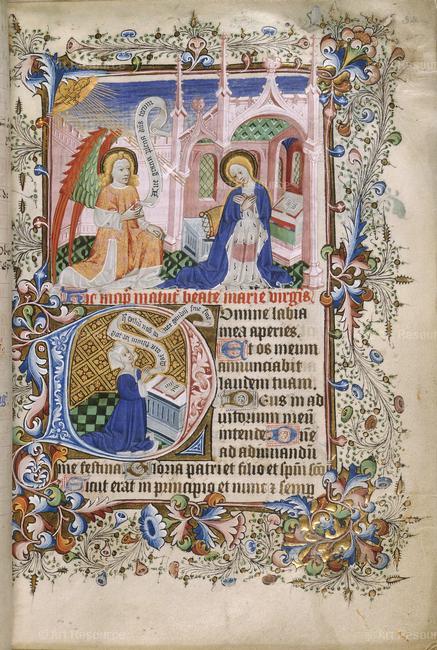 Ave gracia plena dominus tecum
beate marie virgis.
Domine labia
mea aperies.
Et os meum
annunciabit
laudem tuam.
Deus in ad
iutorium meū
intende. Dn̄e
ad adiuuandū
me festina. Gloria patri et filio et spūi scō
Sicut erat in principio et nunc ⁊ semp
© Art Resource